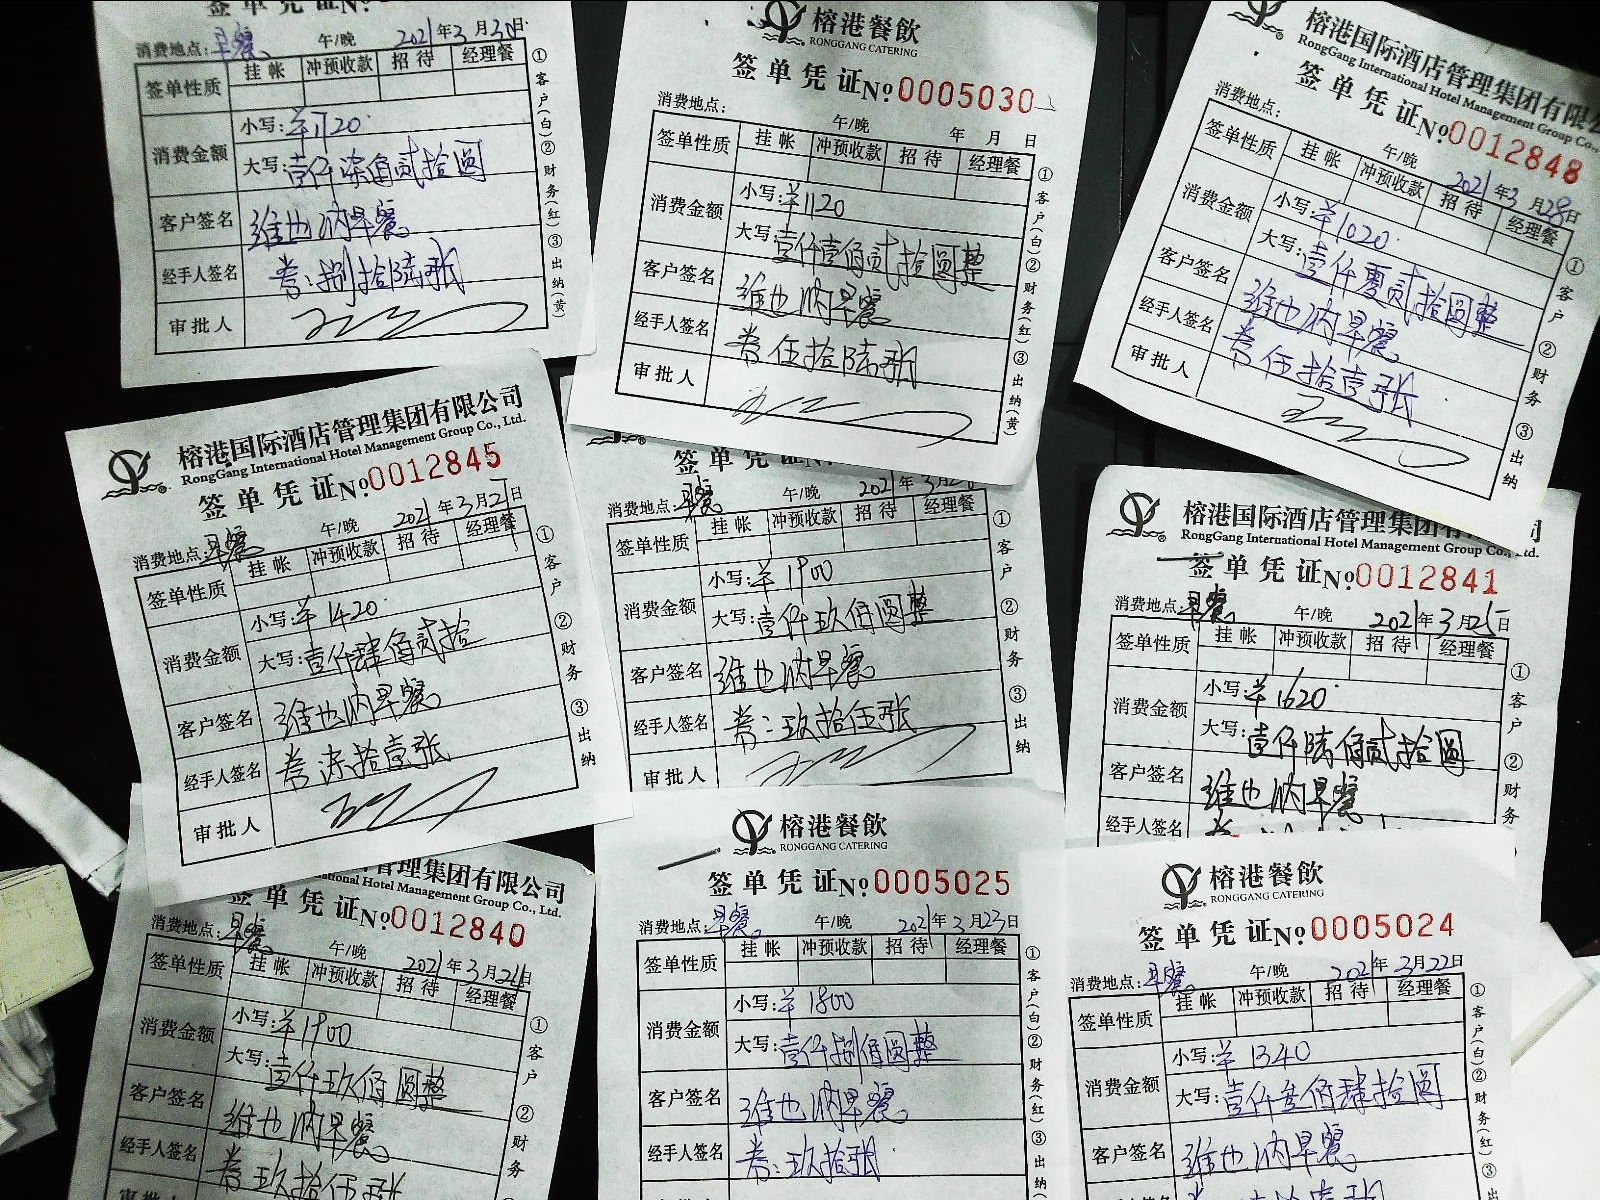 签单凭证№
消费地点:早餐 午/晚 2021年3月30日
签单性质 挂帐 冲预收款 招待 经理餐
消费金额
小写:¥1720
大写:壹仟柒佰贰拾圆
客户签名 维也纳早餐
经手人签名 券:捌拾陆张
审批人
①客户(白)②财务(红)③出纳(黄)
榕港餐飲
RONGGANG CATERING
签单凭证№0005030
消费地点: 午/晚 年 月 日
签单性质 挂帐 冲预收款 招待 经理餐
消费金额
小写:¥1120
大写:壹仟壹佰贰拾圆整
客户签名 维也纳早餐
经手人签名 券伍拾陆张
审批人
①客户(白)②财务(红)③出纳(黄)
榕港国际酒店管理集团有限公
RongGang International Hotel Management Group Co.,
签单凭证№0012848
消费地点: 午/晚 2021年3月28日
签单性质 挂帐 冲预收款 招待 经理餐
消费金额
小写:¥1020
大写:壹仟零贰拾圆整
客户签名 维也纳早餐
经手人签名 券伍拾壹张
审批人
①客户 ②财务 ③出纳
榕港国际酒店管理集团有限公司
RongGang International Hotel Management Group Co., Ltd.
签单凭证№0012845
消费地点:早餐 午/晚 2021年3月27日
签单性质 挂帐 冲预收款 招待 经理餐
消费金额
小写:¥1420
大写:壹仟肆佰贰拾
客户签名 维也纳早餐
经手人签名 券柒拾壹张
审批人
①客户 ②财务 ③出纳
签单凭证№
消费地点:早餐 午/晚 2021年3月
签单性质 挂帐 冲预收款 招待 经理餐
消费金额
小写:¥1900
大写:壹仟玖佰圆整
客户签名 维也纳早餐
经手人签名 券:玖拾伍张
审批人
①客户 ②财务 ③出纳
榕港国际酒店管理集团有限公司
RongGang International Hotel Management Group Co., Ltd.
签单凭证№0012841
消费地点:早餐 午/晚 2021年3月25日
签单性质 挂帐 冲预收款 招待 经理餐
消费金额
小写:¥1620
大写:壹仟陆佰贰拾圆
客户签名 维也纳早餐
经手人签名
①客户 ②财务
管理集团有限公司
ational Hotel Management Group Co., Ltd.
签单凭证№0012840
消费地点:早餐 午/晚 2021年3月24日
签单性质 挂帐 冲预收款 招待 经理餐
消费金额
小写:¥1900
大写:壹仟玖佰圆整
客户签名 维也纳早餐
经手人签名 券玖拾伍张
审批人
①客户 ②财务
榕港餐飲
RONGGANG CATERING
签单凭证№0005025
消费地点:早餐 午/晚 2021年3月23日
签单性质 挂帐 冲预收款 招待 经理餐
消费金额
小写:¥1800
大写:壹仟捌佰圆整
客户签名 维也纳早餐
经手人签名 券:玖拾张
①客户(白)②财务(红)③出纳
榕港餐飲
RONGGANG CATERING
签单凭证№0005024
消费地点:早餐 午/晚 2021年3月22日
签单性质 挂帐 冲预收款 招待 经理餐
消费金额
小写:¥1340
大写:壹仟叁佰肆拾圆
客户签名 维也纳早餐
经手人签名
①客户(白)②财务(红)③出